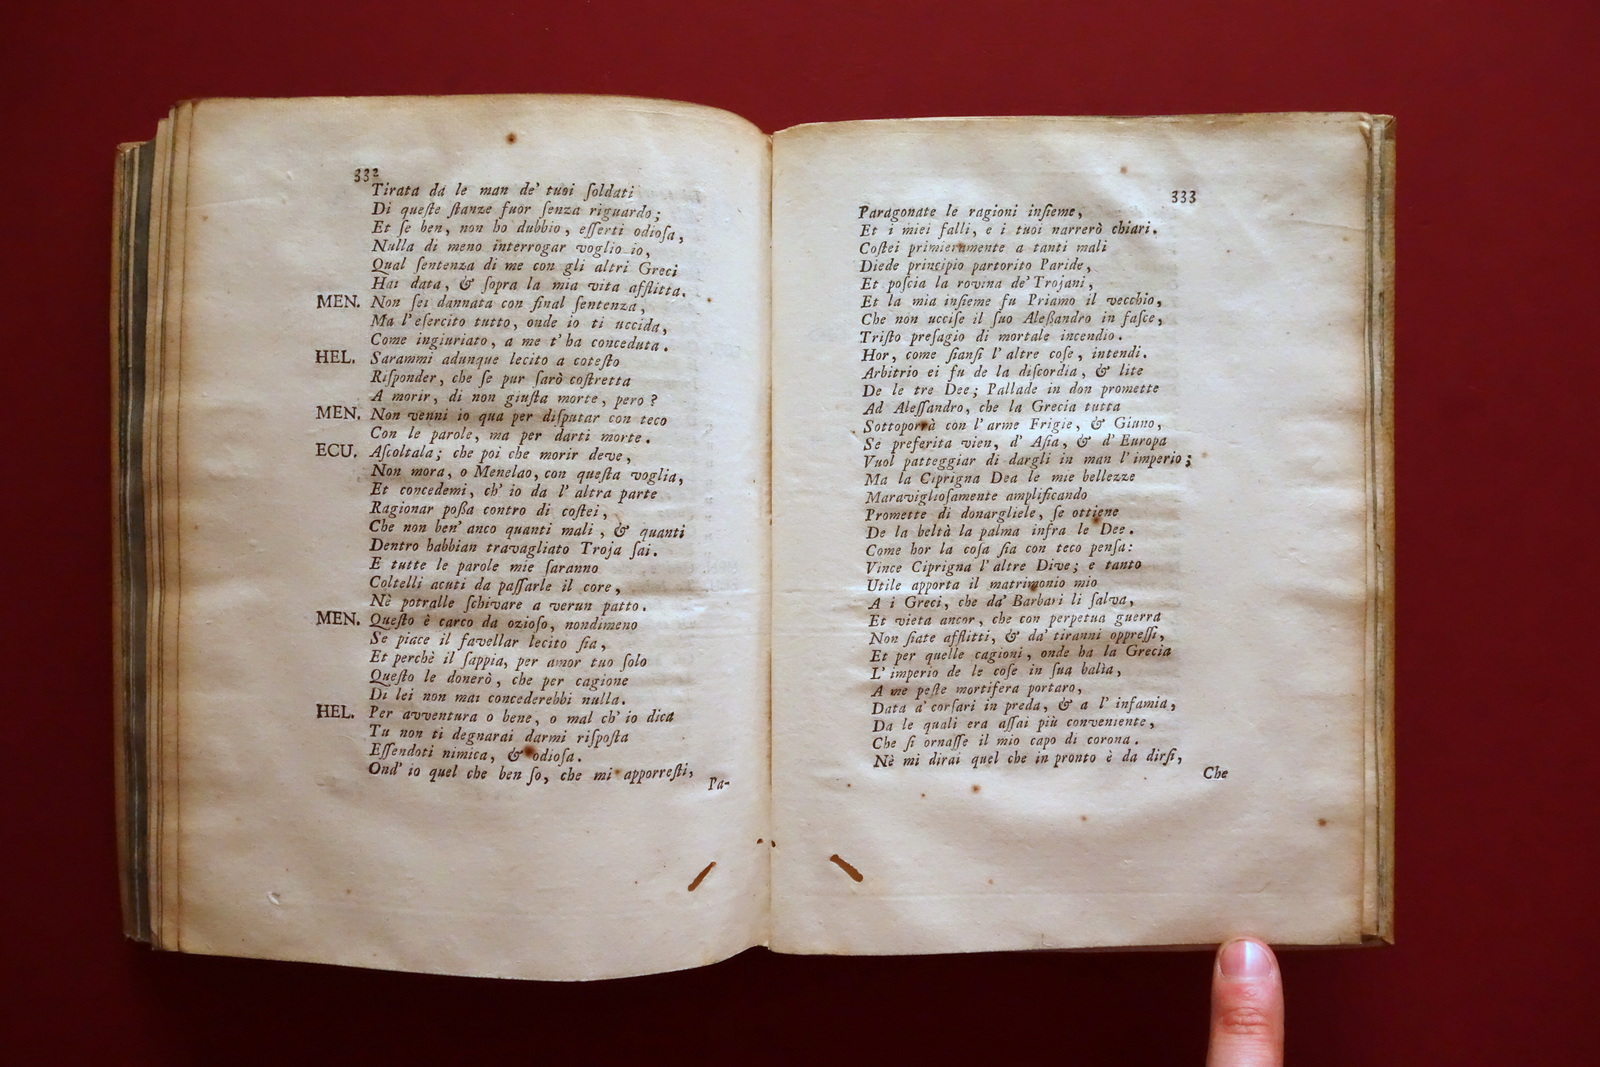 332
Tirata da le man de' tuoi ſoldati
Di queſte ſtanze fuor ſenza riguardo;
Et ſe ben, non ho dubbio, eſſerti odioſa,
Nulla di meno interrogar voglio io,
Qual ſentenza di me con gli altri Greci
Hai data, & ſopra la mia vita afflitta.
MEN. Non ſei dannata con final ſentenza,
Ma l'eſercito tutto, onde io ti uccida,
Come ingiuriato, a me t' ha conceduta.
HEL. Sarammi adunque lecito a coteſto
Riſponder, che ſe pur ſarò coſtretta
A morir, di non giuſta morte, pero?
MEN. Non venni io qua per diſputar con teco
Con le parole, ma per darti morte.
ECU. Aſcoltala; che poi che morir deve,
Non mora, o Menelao, con queſta voglia,
Et concedemi, ch' io da l' altra parte
Ragionar poßa contro di coſtei,
Che non ben' anco quanti mali, & quanti
Dentro habbian travagliato Troja ſai.
E tutte le parole mie ſaranno
Coltelli acuti da paſſarle il core,
Nè potralle ſchivare a verun patto.
MEN. Queſto è carco da ozioſo, nondimeno
Se piace il favellar lecito ſia,
Et perchè il ſappia, per amor tuo ſolo
Queſto le donerò, che per cagione
Di lei non mai concederebbi nulla.
HEL. Per avventura o bene, o mal ch' io dica
Tu non ti degnarai darmi riſpoſta
Eſſendoti nimica, & odioſa.
Ond' io quel che ben ſo, che mi apporreſti,
Pa-
333
Paragonate le ragioni inſieme,
Et i miei falli, e i tuoi narrerò chiari.
Coſtei primieramente a tanti mali
Diede principio partorito Paride,
Et poſcia la rovina de' Trojani,
Et la mia inſieme fu Priamo il vecchio,
Che non ucciſe il ſuo Aleßandro in faſce,
Triſto preſagio di mortale incendio.
Hor, come ſianſi l' altre coſe, intendi.
Arbitrio ei fu de la diſcordia, & lite
De le tre Dee; Pallade in don promette
Ad Aleſſandro, che la Grecia tutta
Sottoporrà con l' arme Frigie, & Giuno,
Se preferita vien, d' Aſia, & d' Europa
Vuol patteggiar di dargli in man l' imperio;
Ma la Ciprigna Dea le mie bellezze
Maraviglioſamente amplificando
Promette di donargliele, ſe ottiene
De la beltà la palma infra le Dee.
Come hor la coſa ſia con teco penſa:
Vince Ciprigna l' altre Dive; e tanto
Utile apporta il matrimonio mio
A i Greci, che da' Barbari li ſalva,
Et vieta ancor, che con perpetua guerra
Non ſiate afflitti, & da' tiranni oppreſſi,
Et per quelle cagioni, onde ha la Grecia
L' imperio de le coſe in ſua balìa,
A me peſte mortifera portaro,
Data a' corſari in preda, & a l' infamia,
Da le quali era aſſai più conveniente,
Che ſi ornaſſe il mio capo di corona.
Nè mi dirai quel che in pronto è da dirſi,
Che